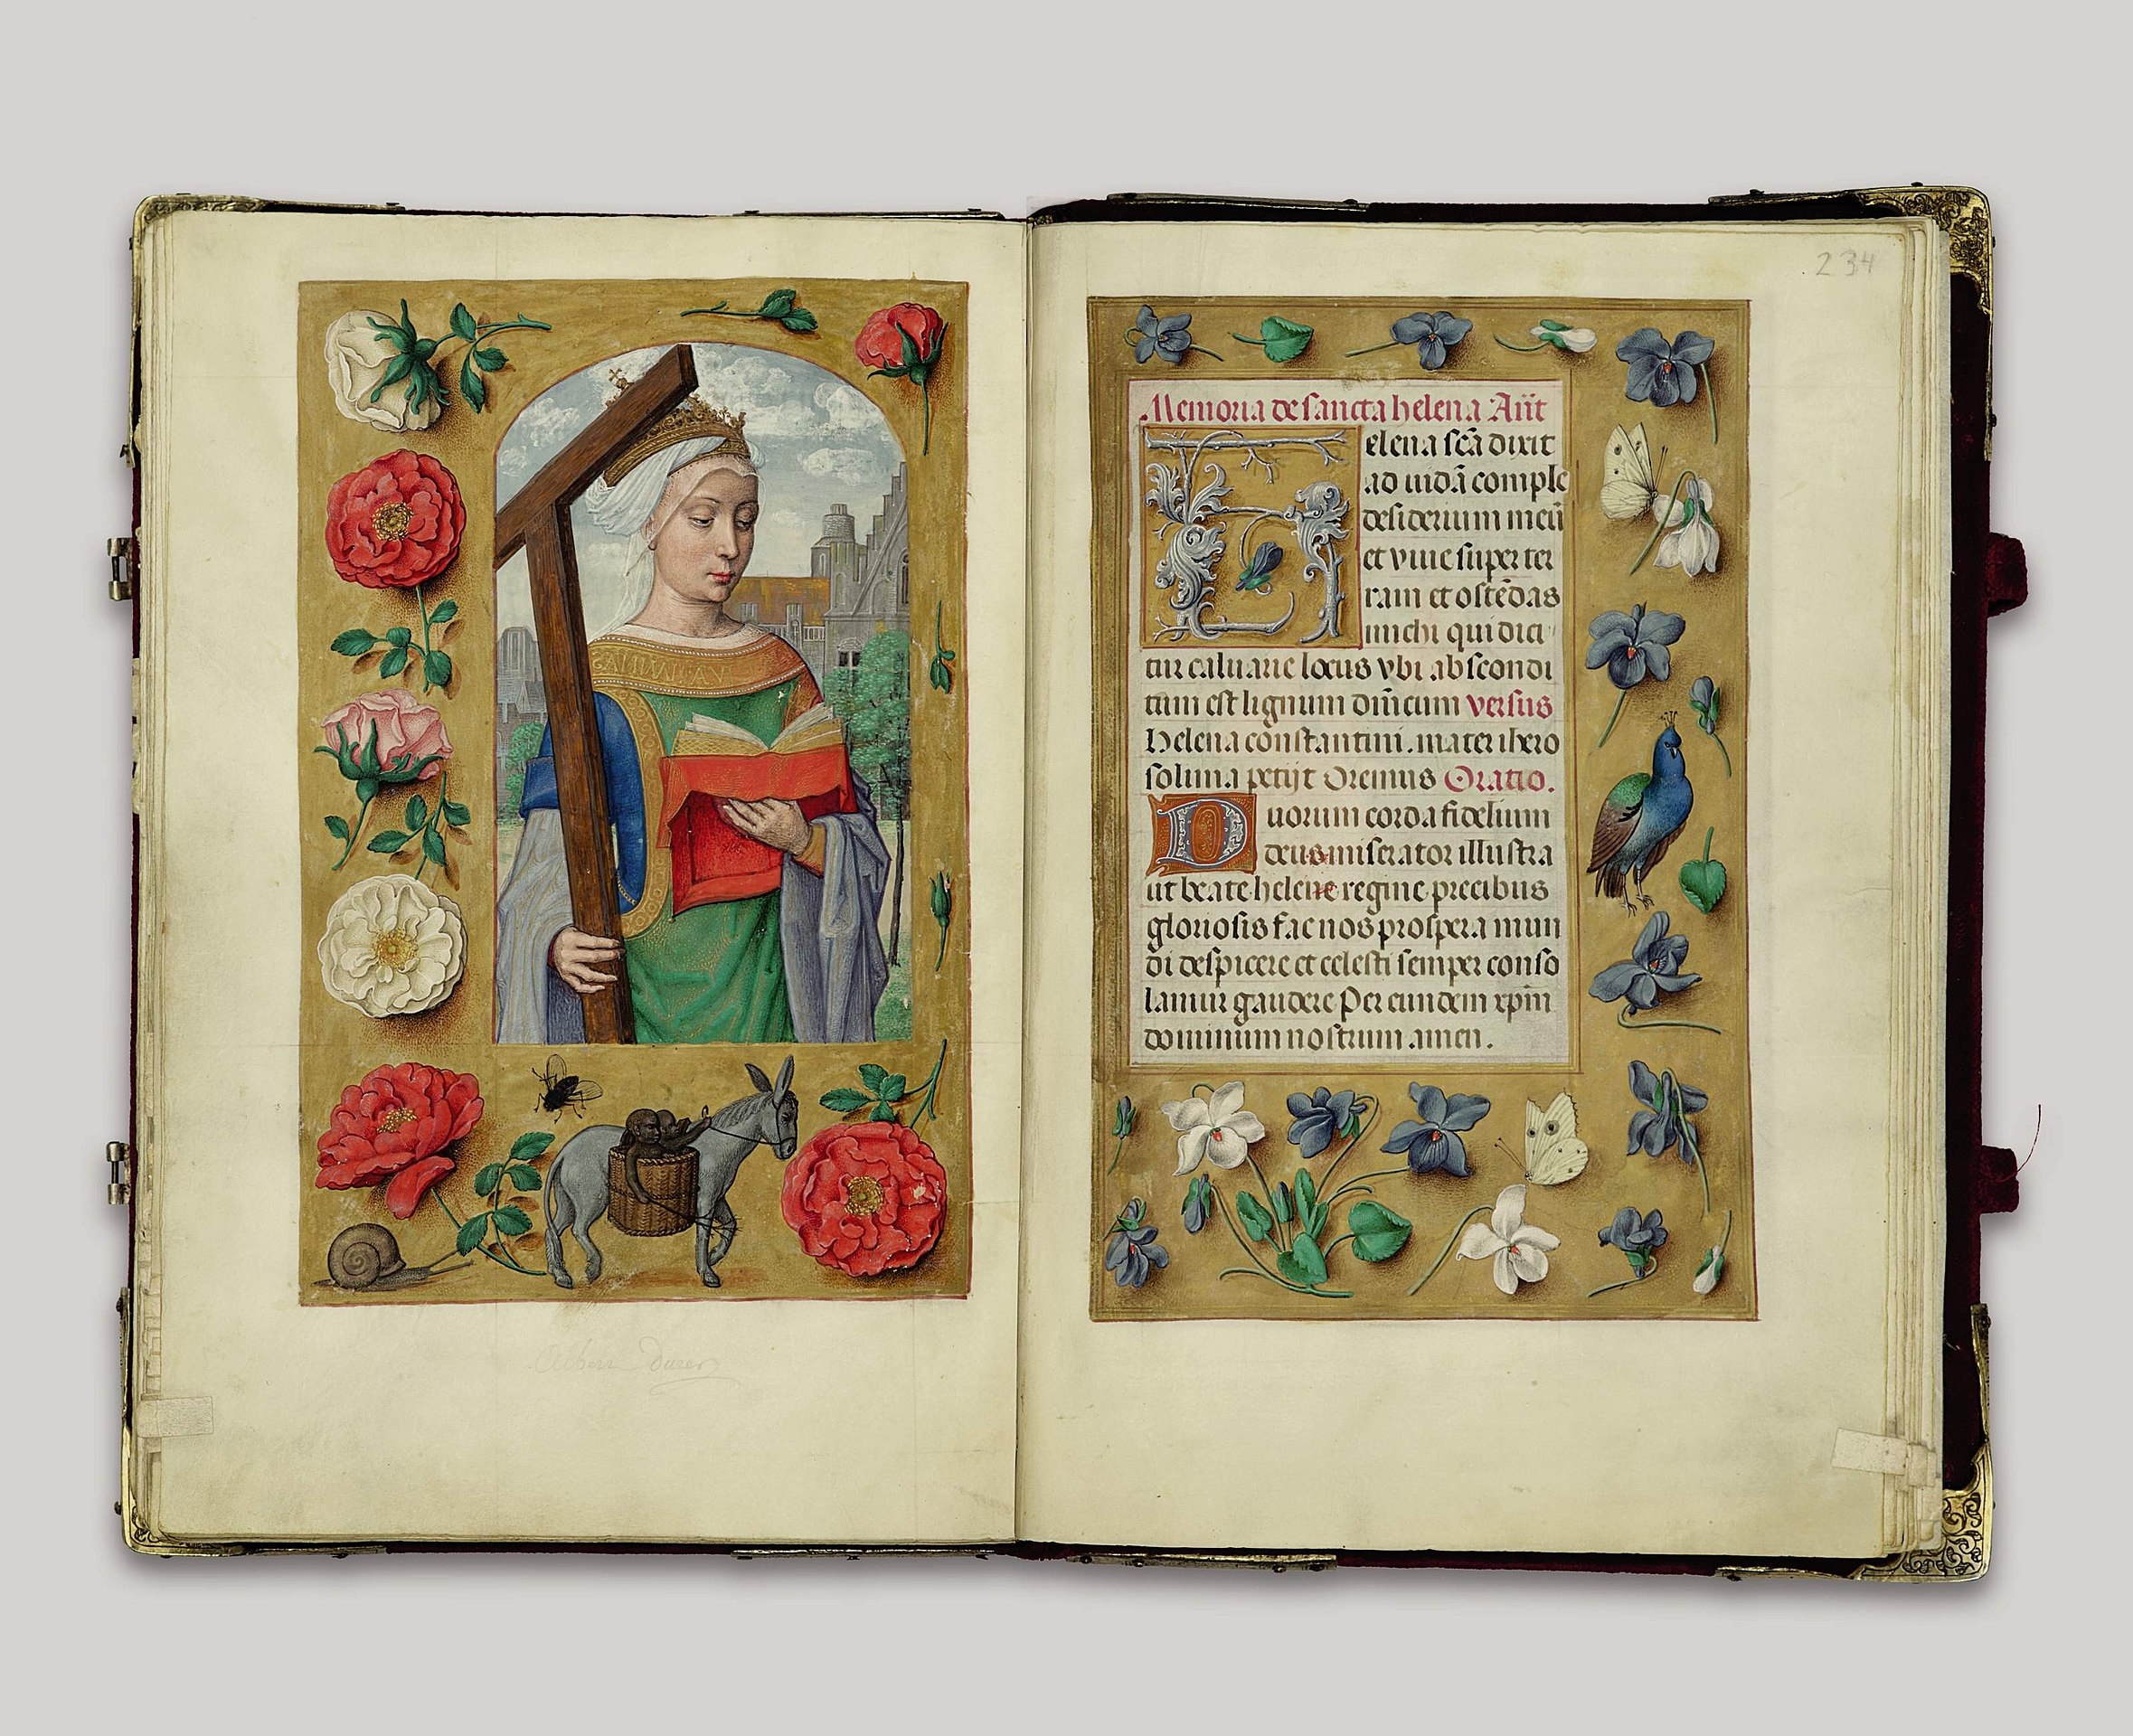 Albert Durer
234
Memoria de sancta helena Añt
Helena scā dixit
ad iudā comple
desiderium meū
et viue super ter
ram et ostēdas
michi qui dici
tur caluarie locus vbi abscondi
tum est lignum dn̄icum versus
Helena constantini. mater ihero
solima petijt Oremus Oratio.
Duorum corda fidelium
deus miserator illustra
ut beate helene regine precibus
gloriosis fac nos prospera mun
di despicere et celesti semper conso
lamur gaudere Per eundem xp̄m
dominum nostrum amen.